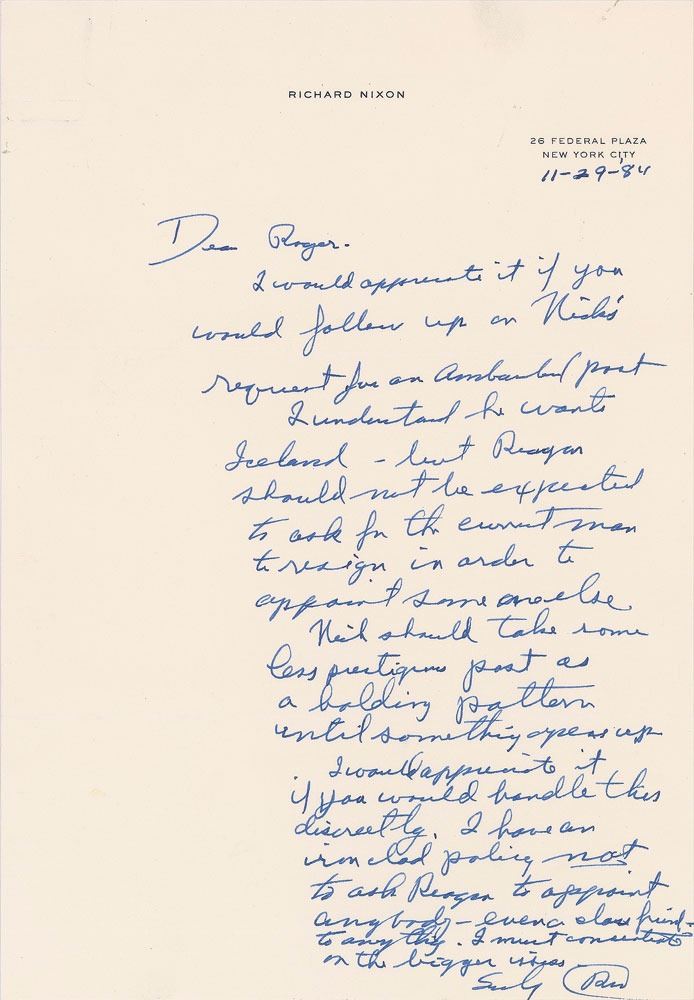 RICHARD NIXON
26 FEDERAL PLAZA
NEW YORK CITY
11-29-84
Dear Roger.
I would appreciate it if you
would follow up on Nick's
request for an Ambassador post
I understand he wants
Iceland - but Reagan
should not be expected
to ask for the current man
to resign in order to
appoint some one else.
Nick should take some
less prestigious post as
a holding pattern
until something opens up
I would appreciate it
if you would handle this
discreetly. I have an
iron clad policy not
to ask Reagan to appoint
anybody - even a close friend -
to anything. I must concentrate
on the bigger issues.
RN